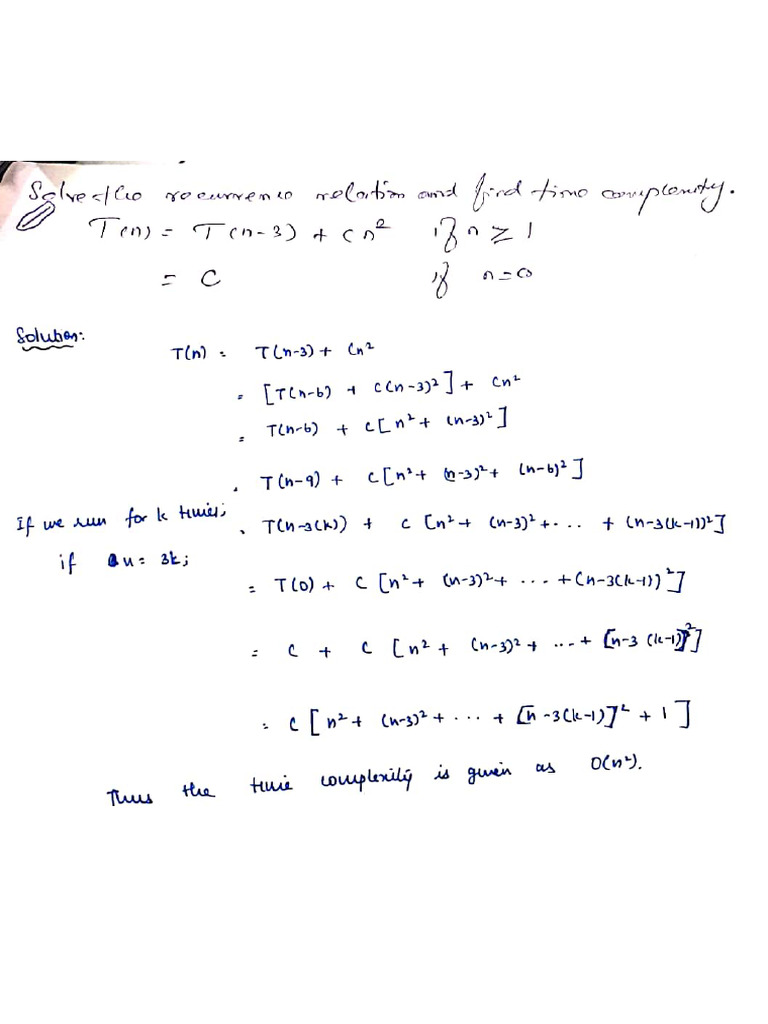 Solve the recurrence relation and find time complexity.
T(n) = T(n-3) + Cn² if n ≥ 1
= C if n=0
Solution:
T(n) = T(n-3) + Cn²
= [T(n-6) + C(n-3)²] + Cn²
= T(n-6) + C[n² + (n-3)²]
= T(n-9) + C[n² + (n-3)² + (n-6)²]
If we run for k times; = T(n-3(k)) + C [n² + (n-3)² + ... + (n-3(k-1))²]
if n = 3k;
= T(0) + C [n² + (n-3)² + ... + (n-3(k-1))²]
= C + C [n² + (n-3)² + ... + [n-3(k-1)]²]
= C [n² + (n-3)² + ... + [n-3(k-1)]² + 1]
Thus the time complexity is given as O(n²).